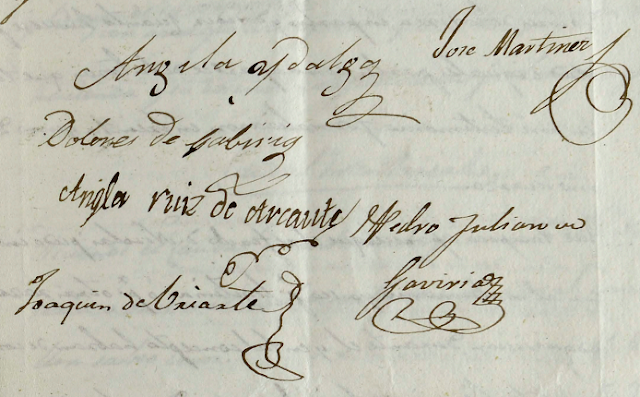 Angela ydalgo
Jose Martinez
Dolores de Gabiria
Angla ruiz de Arcaute
Pedro Julian de
Gaviria
Joaquin de Uriarte